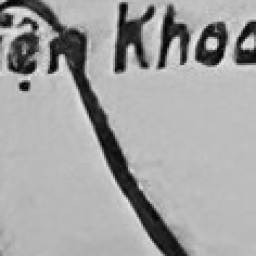 iện Khoa